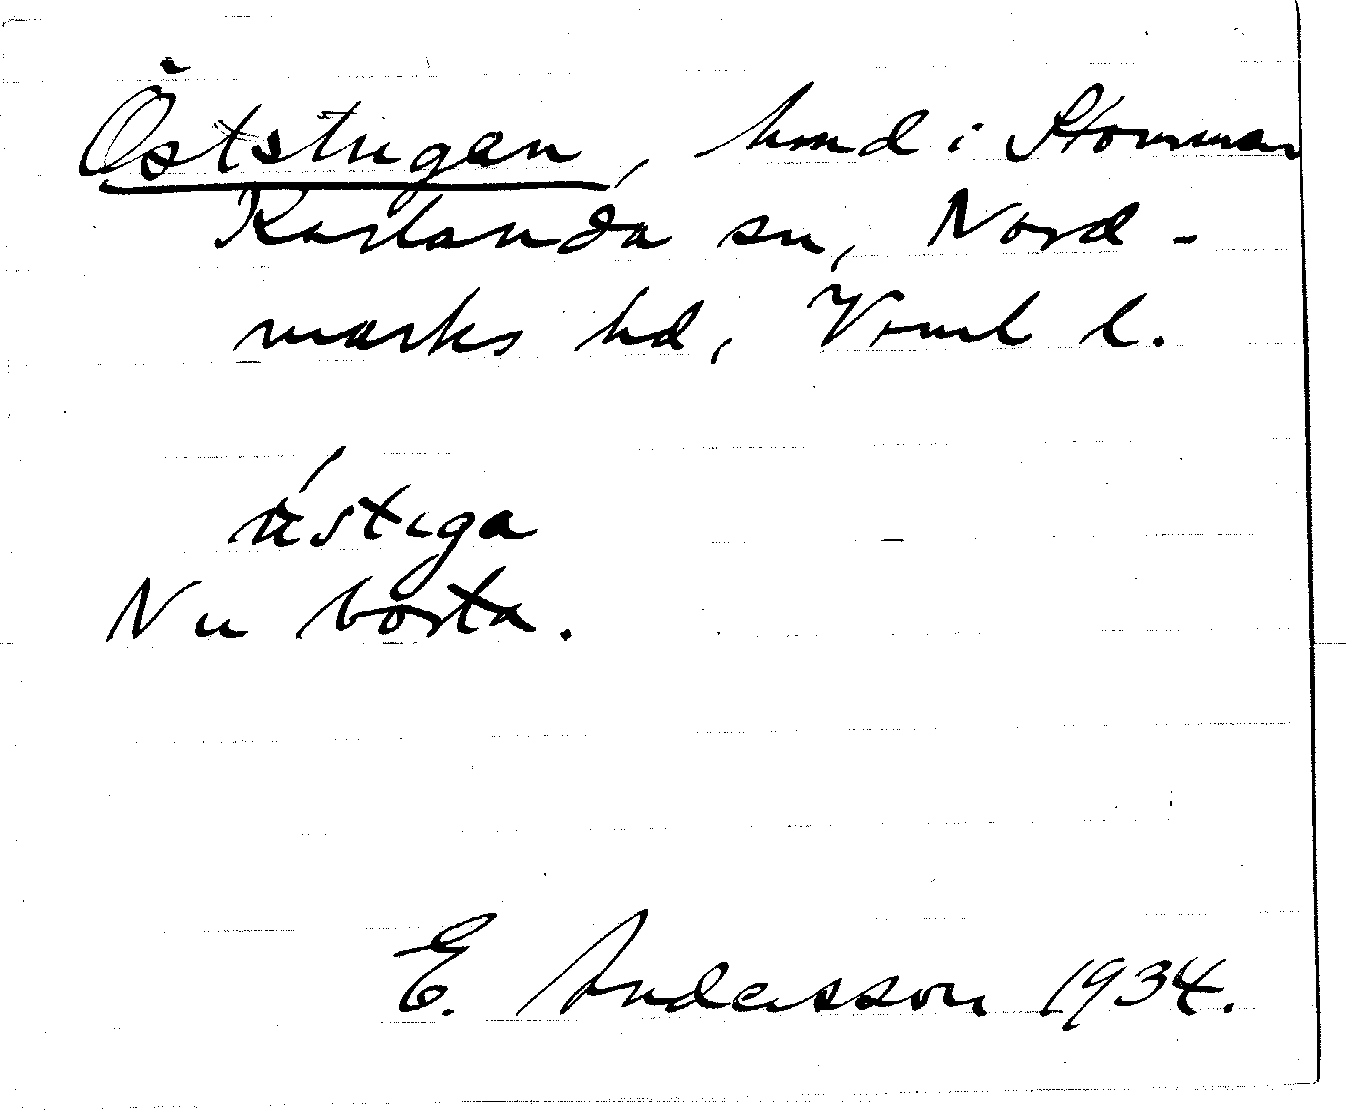 Öststugan, hmd i Stommen
Karlanda sn, Nord-
marks hd, Vrml l.
ústiga
Nu borta.
E. Andersson 1934.